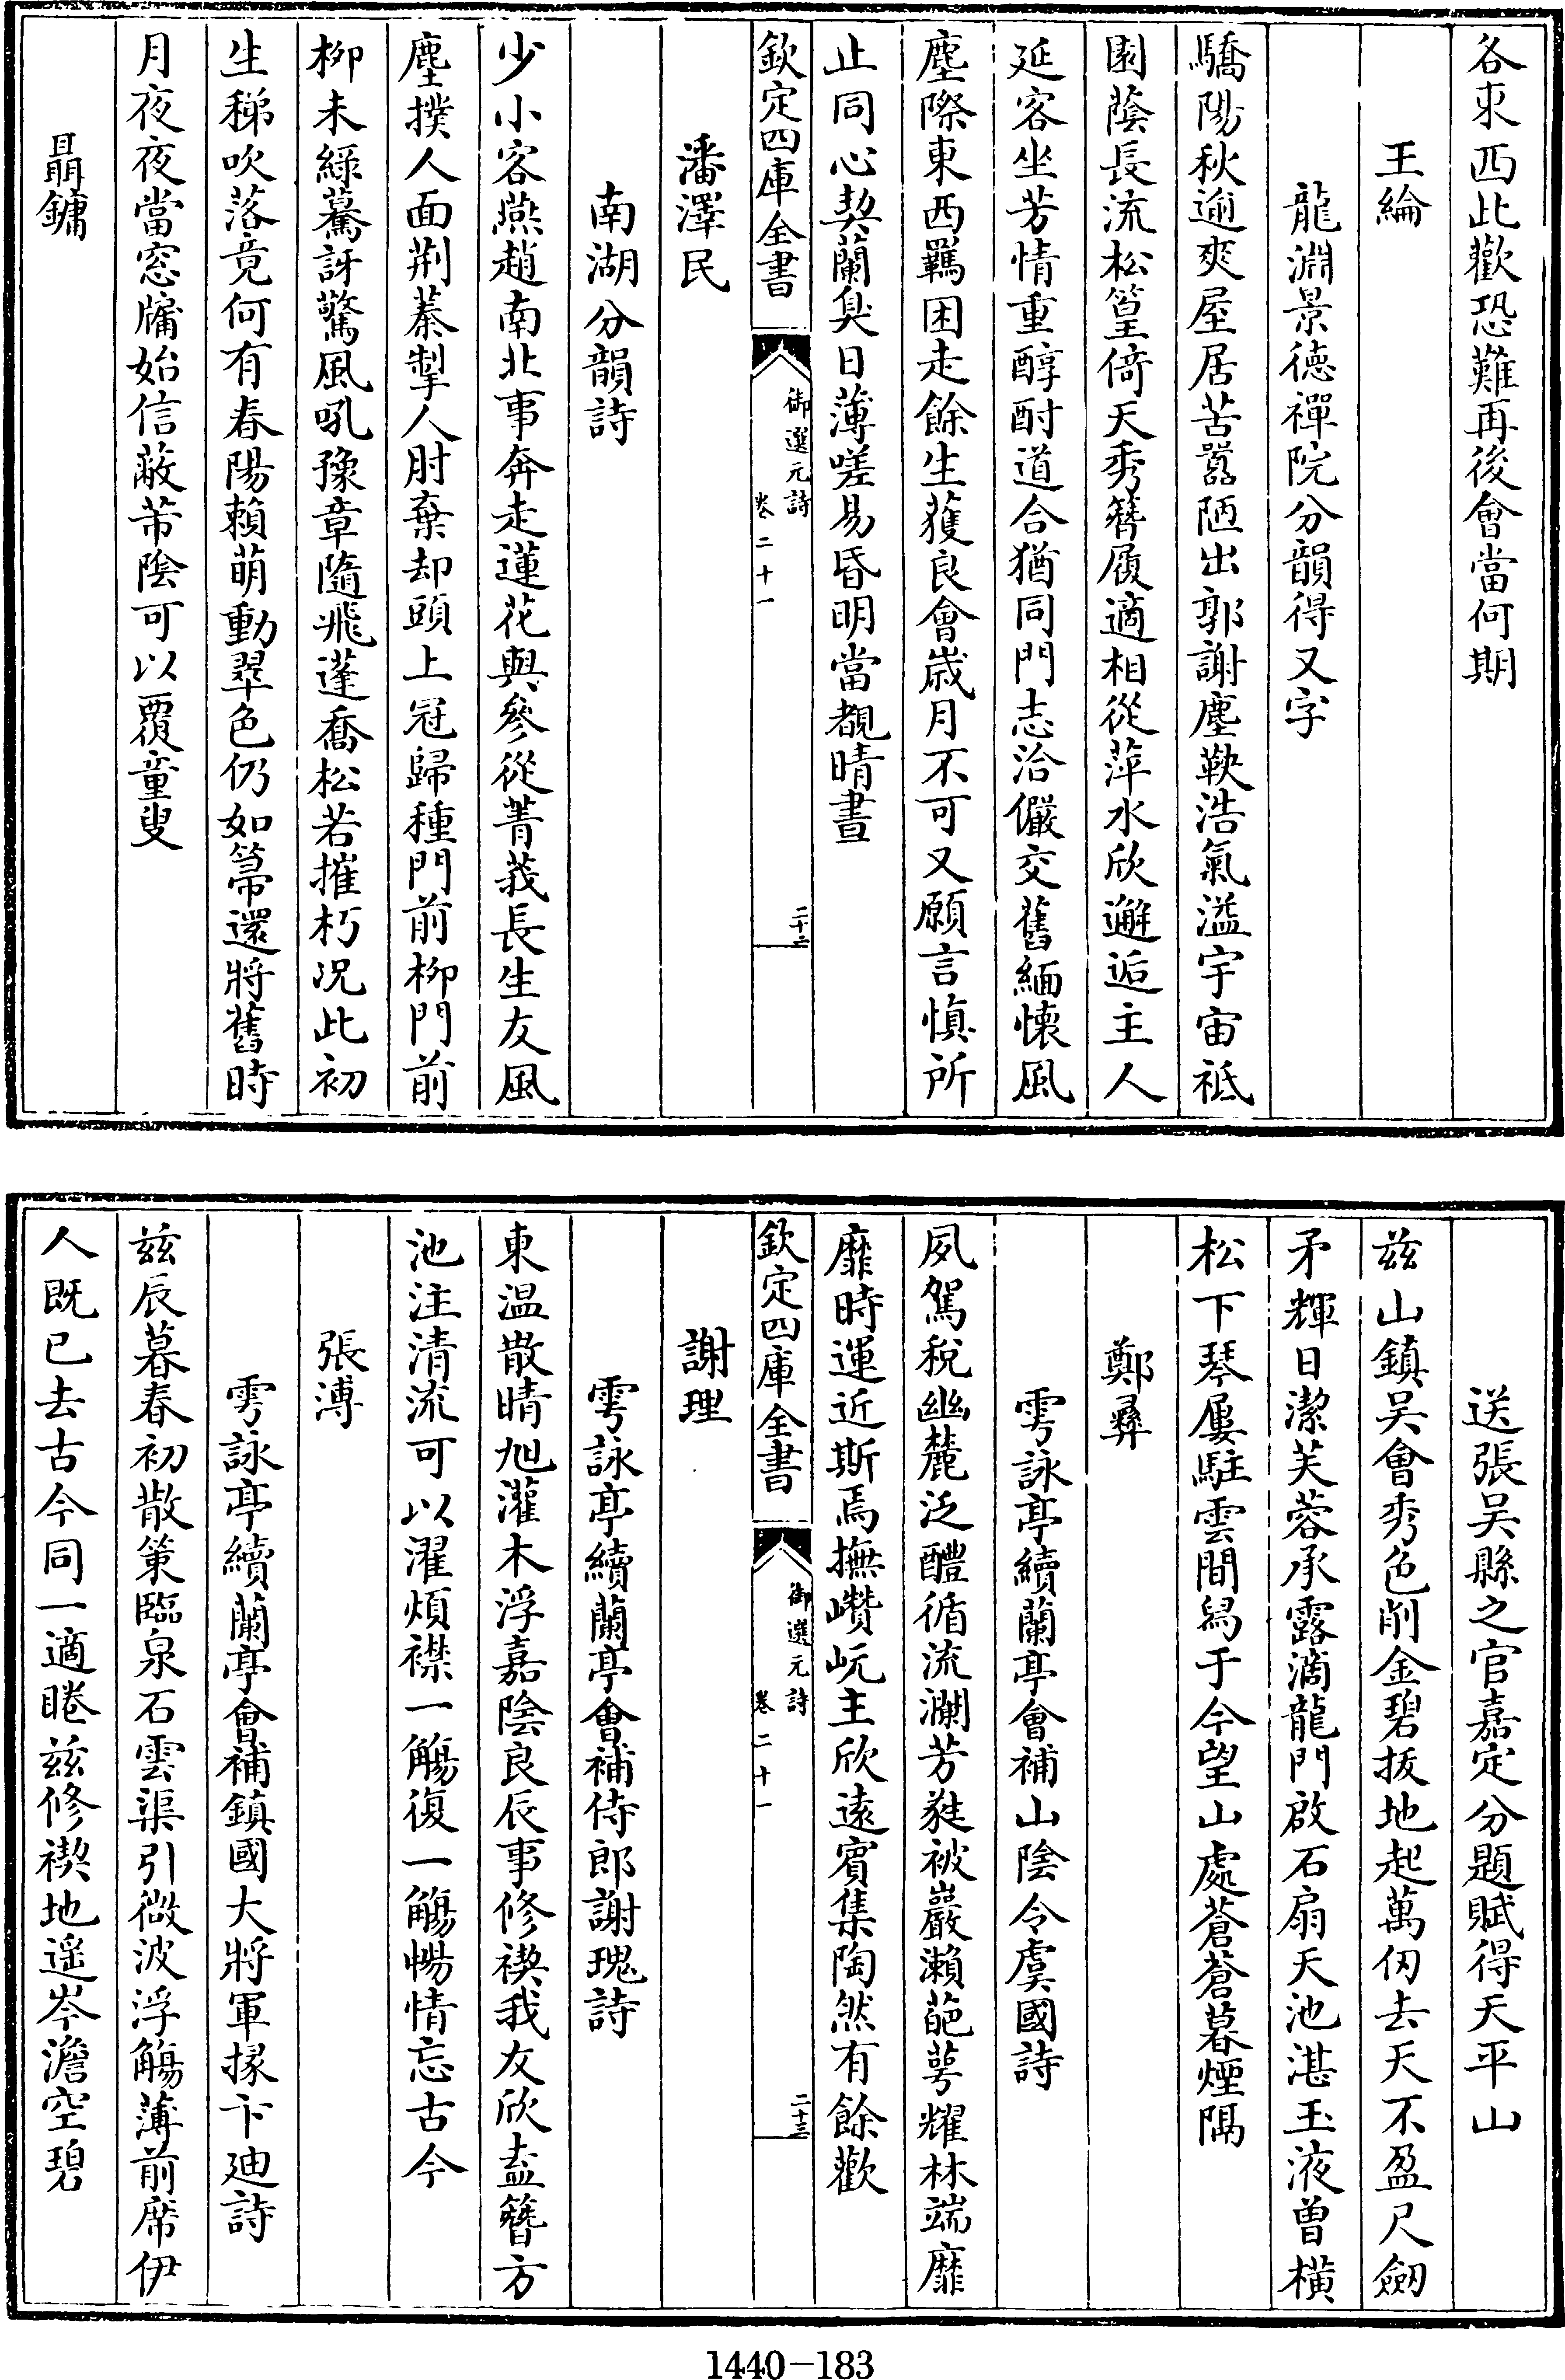 各東西此歡恐難再後會當何期
王綸
龍淵景德禪院分韻得又字
驕陽秋逾爽屋居苦囂陋出郭謝塵鞅浩氣溢宇宙祗
園蔭長流松篁倚天秀簪履適相從萍水欣邂逅主人
延客坐芳情重醇酎道合猶同門志洽儼交舊緬懷風
塵際東西羈困走餘生獲良會歲月不可又願言慎所
止同心契蘭臭日薄嗟易昏明當覩晴晝
欽定四庫全書
御選元詩
卷二十一
二十二
潘澤民
南湖分韻詩
少小客燕趙南北事奔走蓮花與參從菁莪長生友風
塵撲人面荆蓁掣人肘棄却頭上冠歸種門前柳門前
柳未綠驀訝驚風吼豫章隨飛蓬喬松若摧朽况此初
生稊吹落竟何有春陽賴萌動翠色仍如箒還將舊時
月夜夜當窓牖始信蔽芾陰可以覆童叟
聶鏞
送張吳縣之官嘉定分題賦得天平山
兹山鎮吳會秀色削金碧拔地起萬仞去天不盈尺劒
矛輝日潔芙蓉承露滴龍門啟石扇天池湛玉液曽橫
松下琴屢駐雲間舄于今望山處蒼蒼暮煙隔
鄭彝
雩詠亭續蘭亭會補山陰令虞國詩
夙駕稅幽麓泛醴循流瀾芳蕤被巖瀨葩萼耀林端靡
靡時運近斯焉撫巑岏主欣遠賓集陶然有餘歡
欽定四庫全書
御選元詩
卷二十一
二十三
謝理
雩詠亭續蘭亭會補侍郎謝瑰詩
東温散晴旭灌木浮嘉陰良辰事修禊我友欣盍簪方
池注清流可以濯煩襟一觴復一觴暢情忘古今
張溥
雩詠亭續蘭亭會補鎮國大將軍掾卞廸詩
兹辰暮春初散策臨泉石雲渠引微波浮觴薄前席伊
人既已去古今同一適睠兹修禊地遥岑澹空碧
1440-183